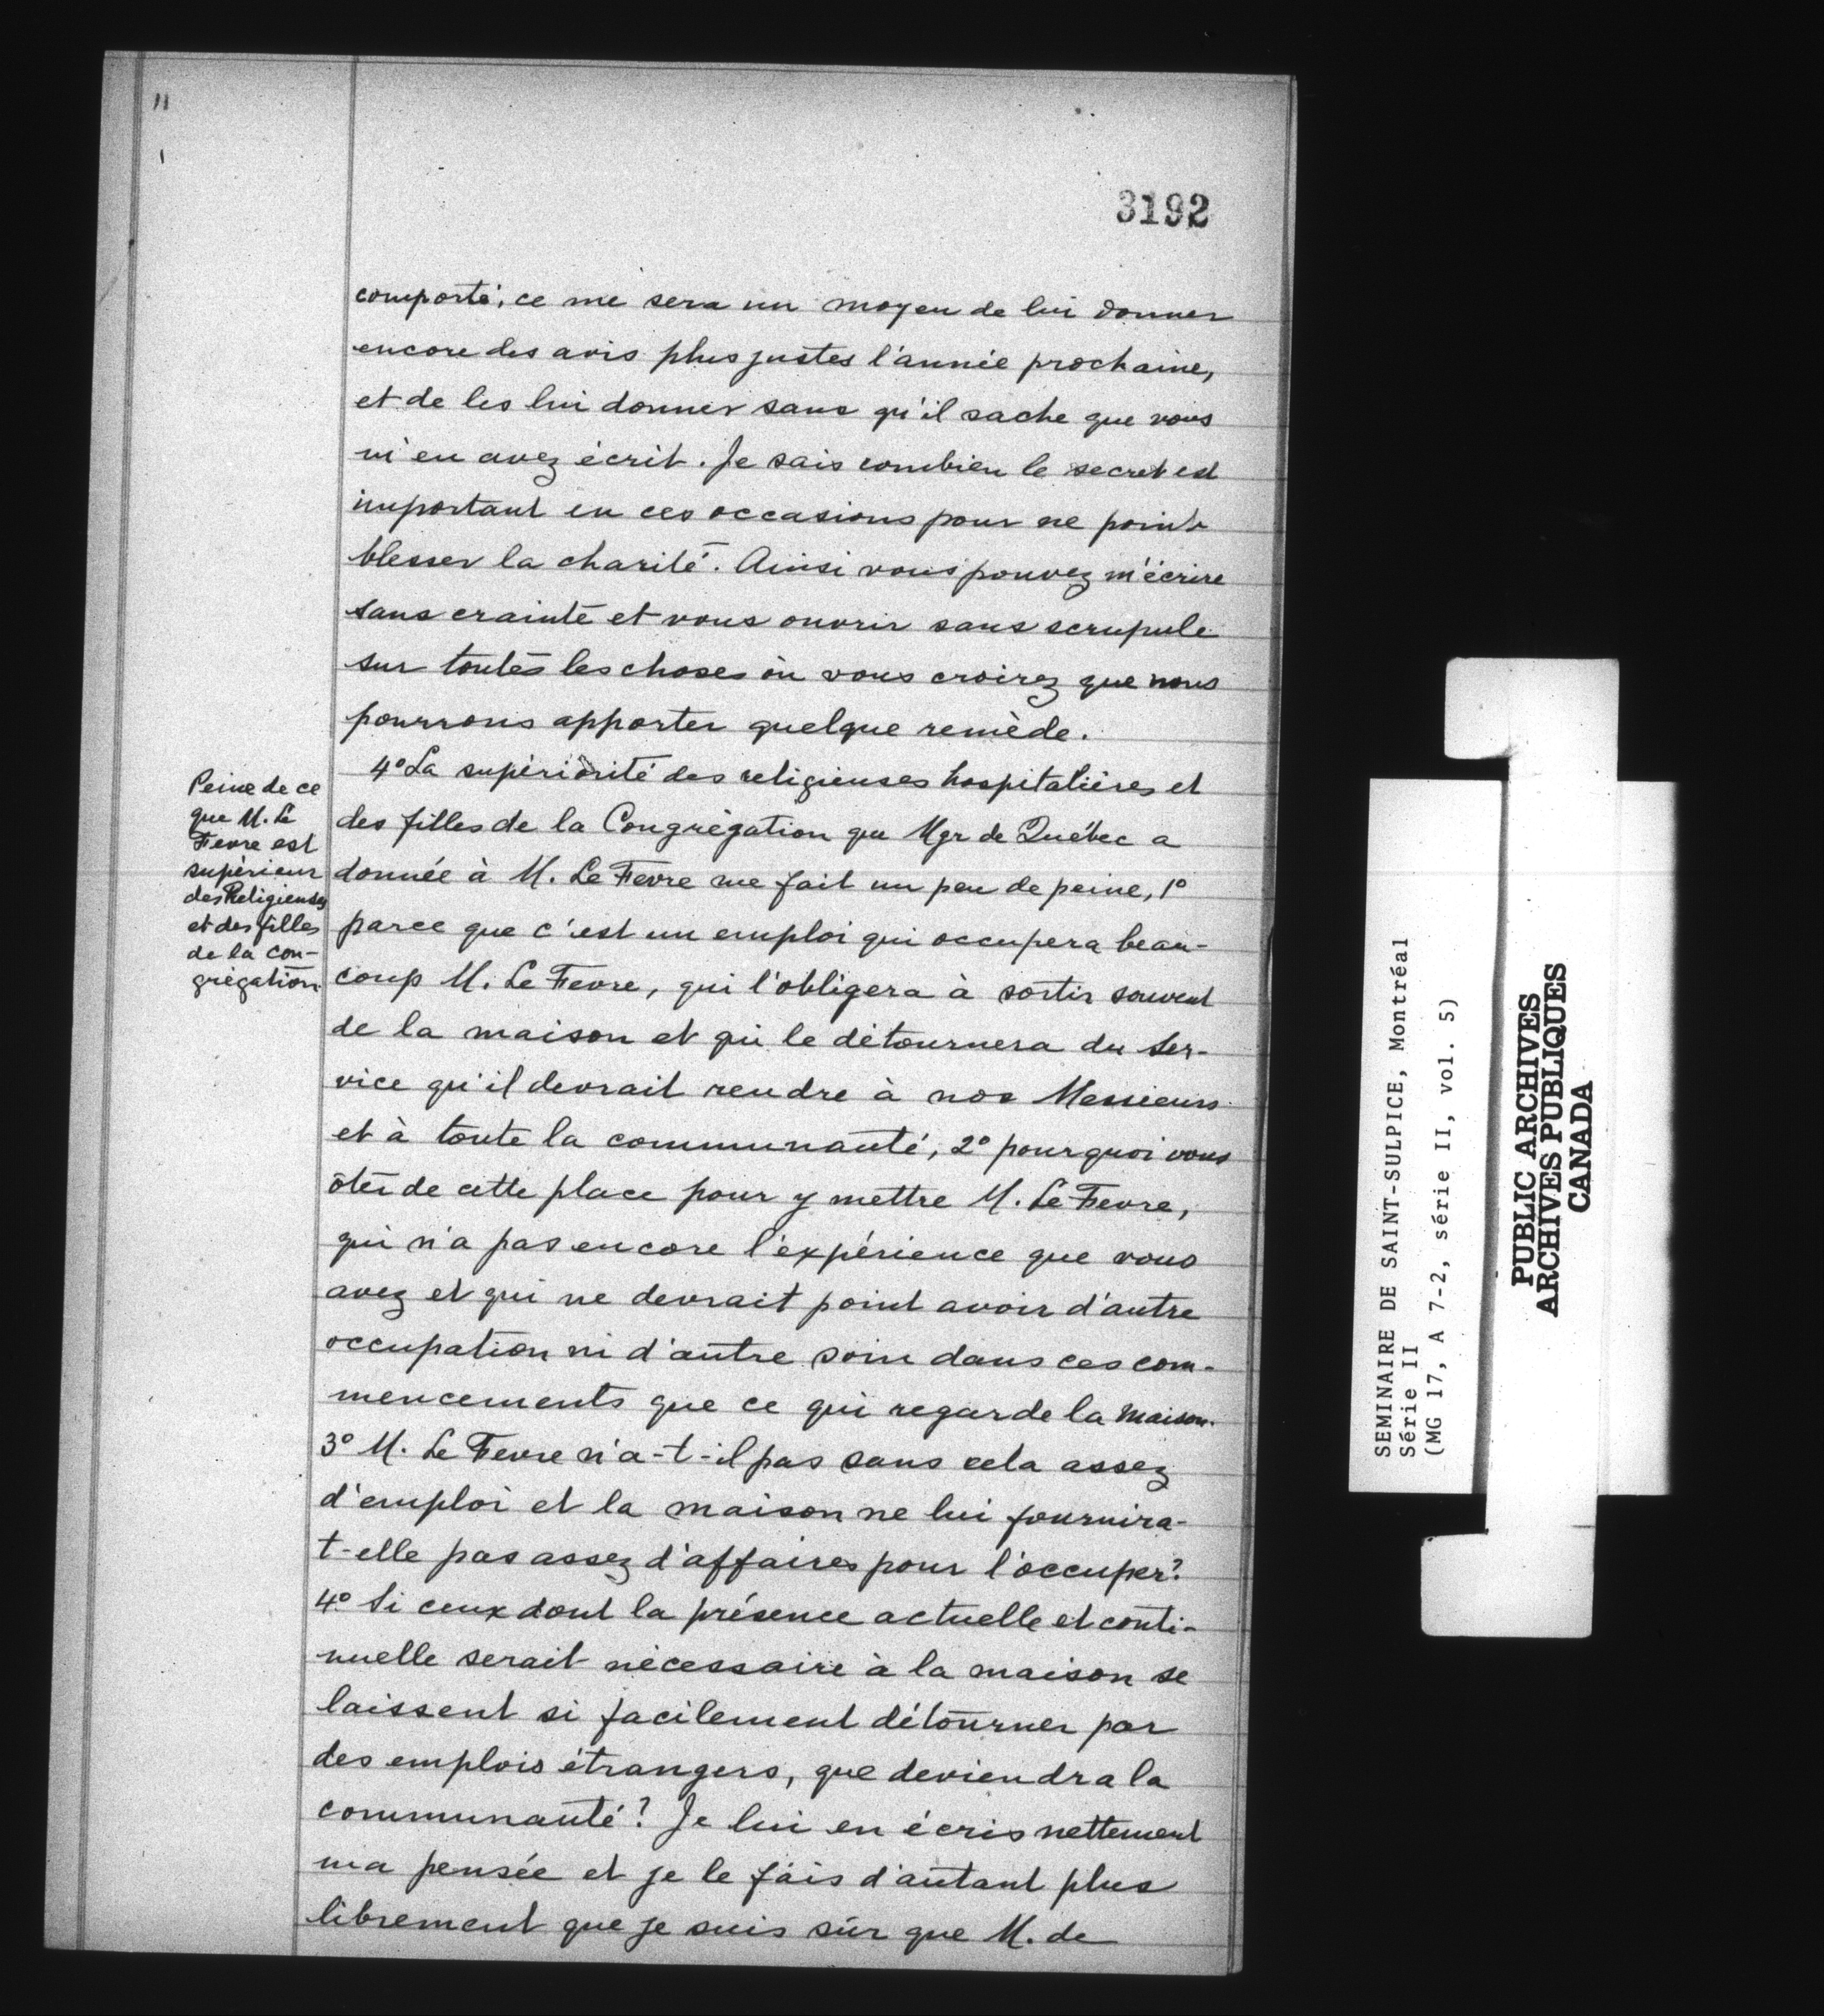 3192
comporté; ce me sera un moyen de lui donner
encore des avis plus justes l'année prochaine,
et de les lui donner sans qu'il sache que vous
m'en avez écrit. Je sais combien le secret est
important en ces occasions pour ne point
blesser la charité. Ainsi vous pouvez m'écrire
sans crainte et vous ouvrir sans scrupule
sur toutes les choses où vous croirez que nous
pourrons apporter quelque remède.
Peine de ce
que M. Le
Fevre est
supérieur
des Religieuses
et des filles
de la con-
grégation
4º La supériorité des religieuses hospitalières et
des filles de la Congrégation que Mgr de Québec a
donnée à M. Le Fevre me fait un peu de peine, 1º
parce que c'est un emploi qui occupera beau-
coup M. Le Fevre, qui l'obligera à sortir souvent
de la maison et qui le détournera du ser-
vice qu'il devrait rendre à nos Messieurs
et à toute la communauté; 2º pourquoi vous
ôter de cette place pour y mettre M. Le Fevre,
qui n'a pas encore l'expérience que vous
avez et qui ne devrait point avoir d'autre
occupation ni d'autre soin dans ces com-
mencements que ce qui regarde la maison.
3º M. Le Fevre n'a-t-il pas sans cela assez
d'emploi et la maison ne lui fournira-
t-elle pas assez d'affaires pour l'occuper?
4º Si ceux dont la présence actuelle et conti-
nuelle serait nécessaire à la maison se
laissent si facilement détourner par
des emplois étrangers, que deviendra la
communauté? Je lui en écris nettement
ma pensée et je le fais d'autant plus
librement que je suis sûr que M. de
SEMINAIRE DE SAINT-SULPICE, Montréal
Série II
(MG 17, A 7-2, série II, vol. 5)
PUBLIC ARCHIVES
ARCHIVES PUBLIQUES
CANADA